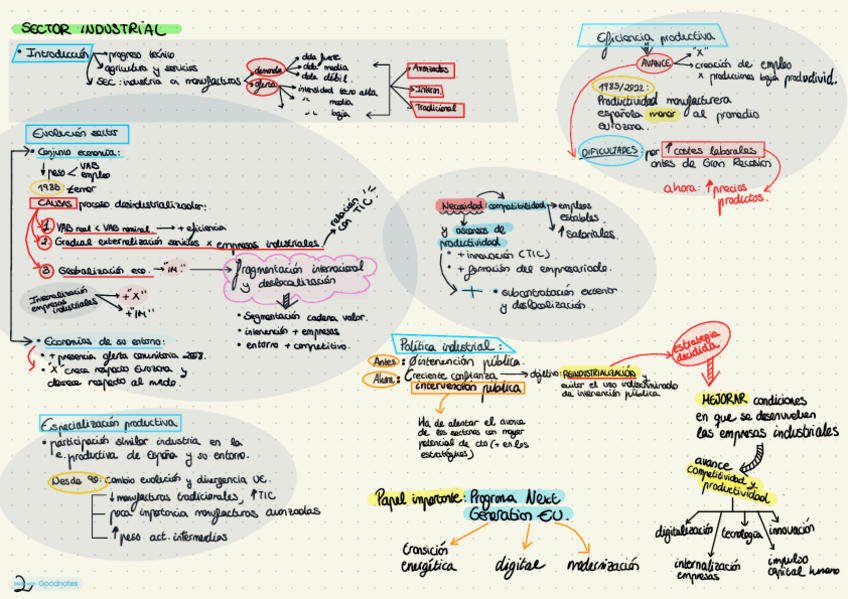 SECTOR INDUSTRIAL
• Introducción
progreso técnico
agricultura y servicios
SEC: industria o manufacturas
demanda
dda fuerte
dda media
dda débil
oferta
intensidad tecno alta
" media
" baja
Avanzadas
Interm.
Tradicional
Evolución sector
• Conjunto economía:
↓ peso < VAB
empleo
1980: Terror
CAUSAS proceso desindustrializador:
1 VAB real < VAB nominal → + eficiencia
2 Gradual externalización servicios x empresas industriales
relación
con TIC
3 Globalización eco. → "IM"
Fragmentación internacional
y deslocalización
Internalización
empresas
industriales
+ "X"
+ "IM"
• Segmentación cadena valor.
• intervención + empresas
• entorno + competitivo.
• Economías de su entorno:
• + presencia oferta comunitaria 2008.
• "X" crece respecto Eurozona y
decrece respecto al mundo.
Especialización productiva
• participación similar industria en la
e. productiva de España y su entorno.
Desde 90: cambio evolución y divergencia UE.
↓ manufacturas tradicionales, ↑ TIC
poca importancia manufacturas avanzadas
↑ peso act. intermedias
Eficiencia productiva
AVANCE
"X"
creación de empleo
x producciones bajas productivid.
1985/2022:
Productividad manufacturera
española menor al promedio
eurozona.
DIFICULTADES: por ↑ costes laborales
antes de Gran Recesión
ahora: ↑ precios
productos.
Necesidad compatibilidad
empleos
estables
↑ salariales.
y ascensos de
productividad
• + innovación (TIC)
• + formación del empresariado.
• subcontratación exterior
y deslocalización.
Política industrial:
Antes: Ø intervención pública.
Ahora: Creciente confianza
intervención pública
objetivo: REINDUSTRIALIZACIÓN y
evitar el uso indiscriminado
de intervención pública
estrategia
decidida
Ha de alentar el avance
de los sectores con mayor
potencial de cto (+ en los
estratégicos)
MEJORAR condiciones
en que se desenvuelven
las empresas industriales
avance
competitividad y
productividad
digitalización
tecnología
innovación
internalización
empresas
impulso
capital humano
Papel importante: Programa Next
Generation EU.
transición
energética
digital
modernización
2
Goodnotes